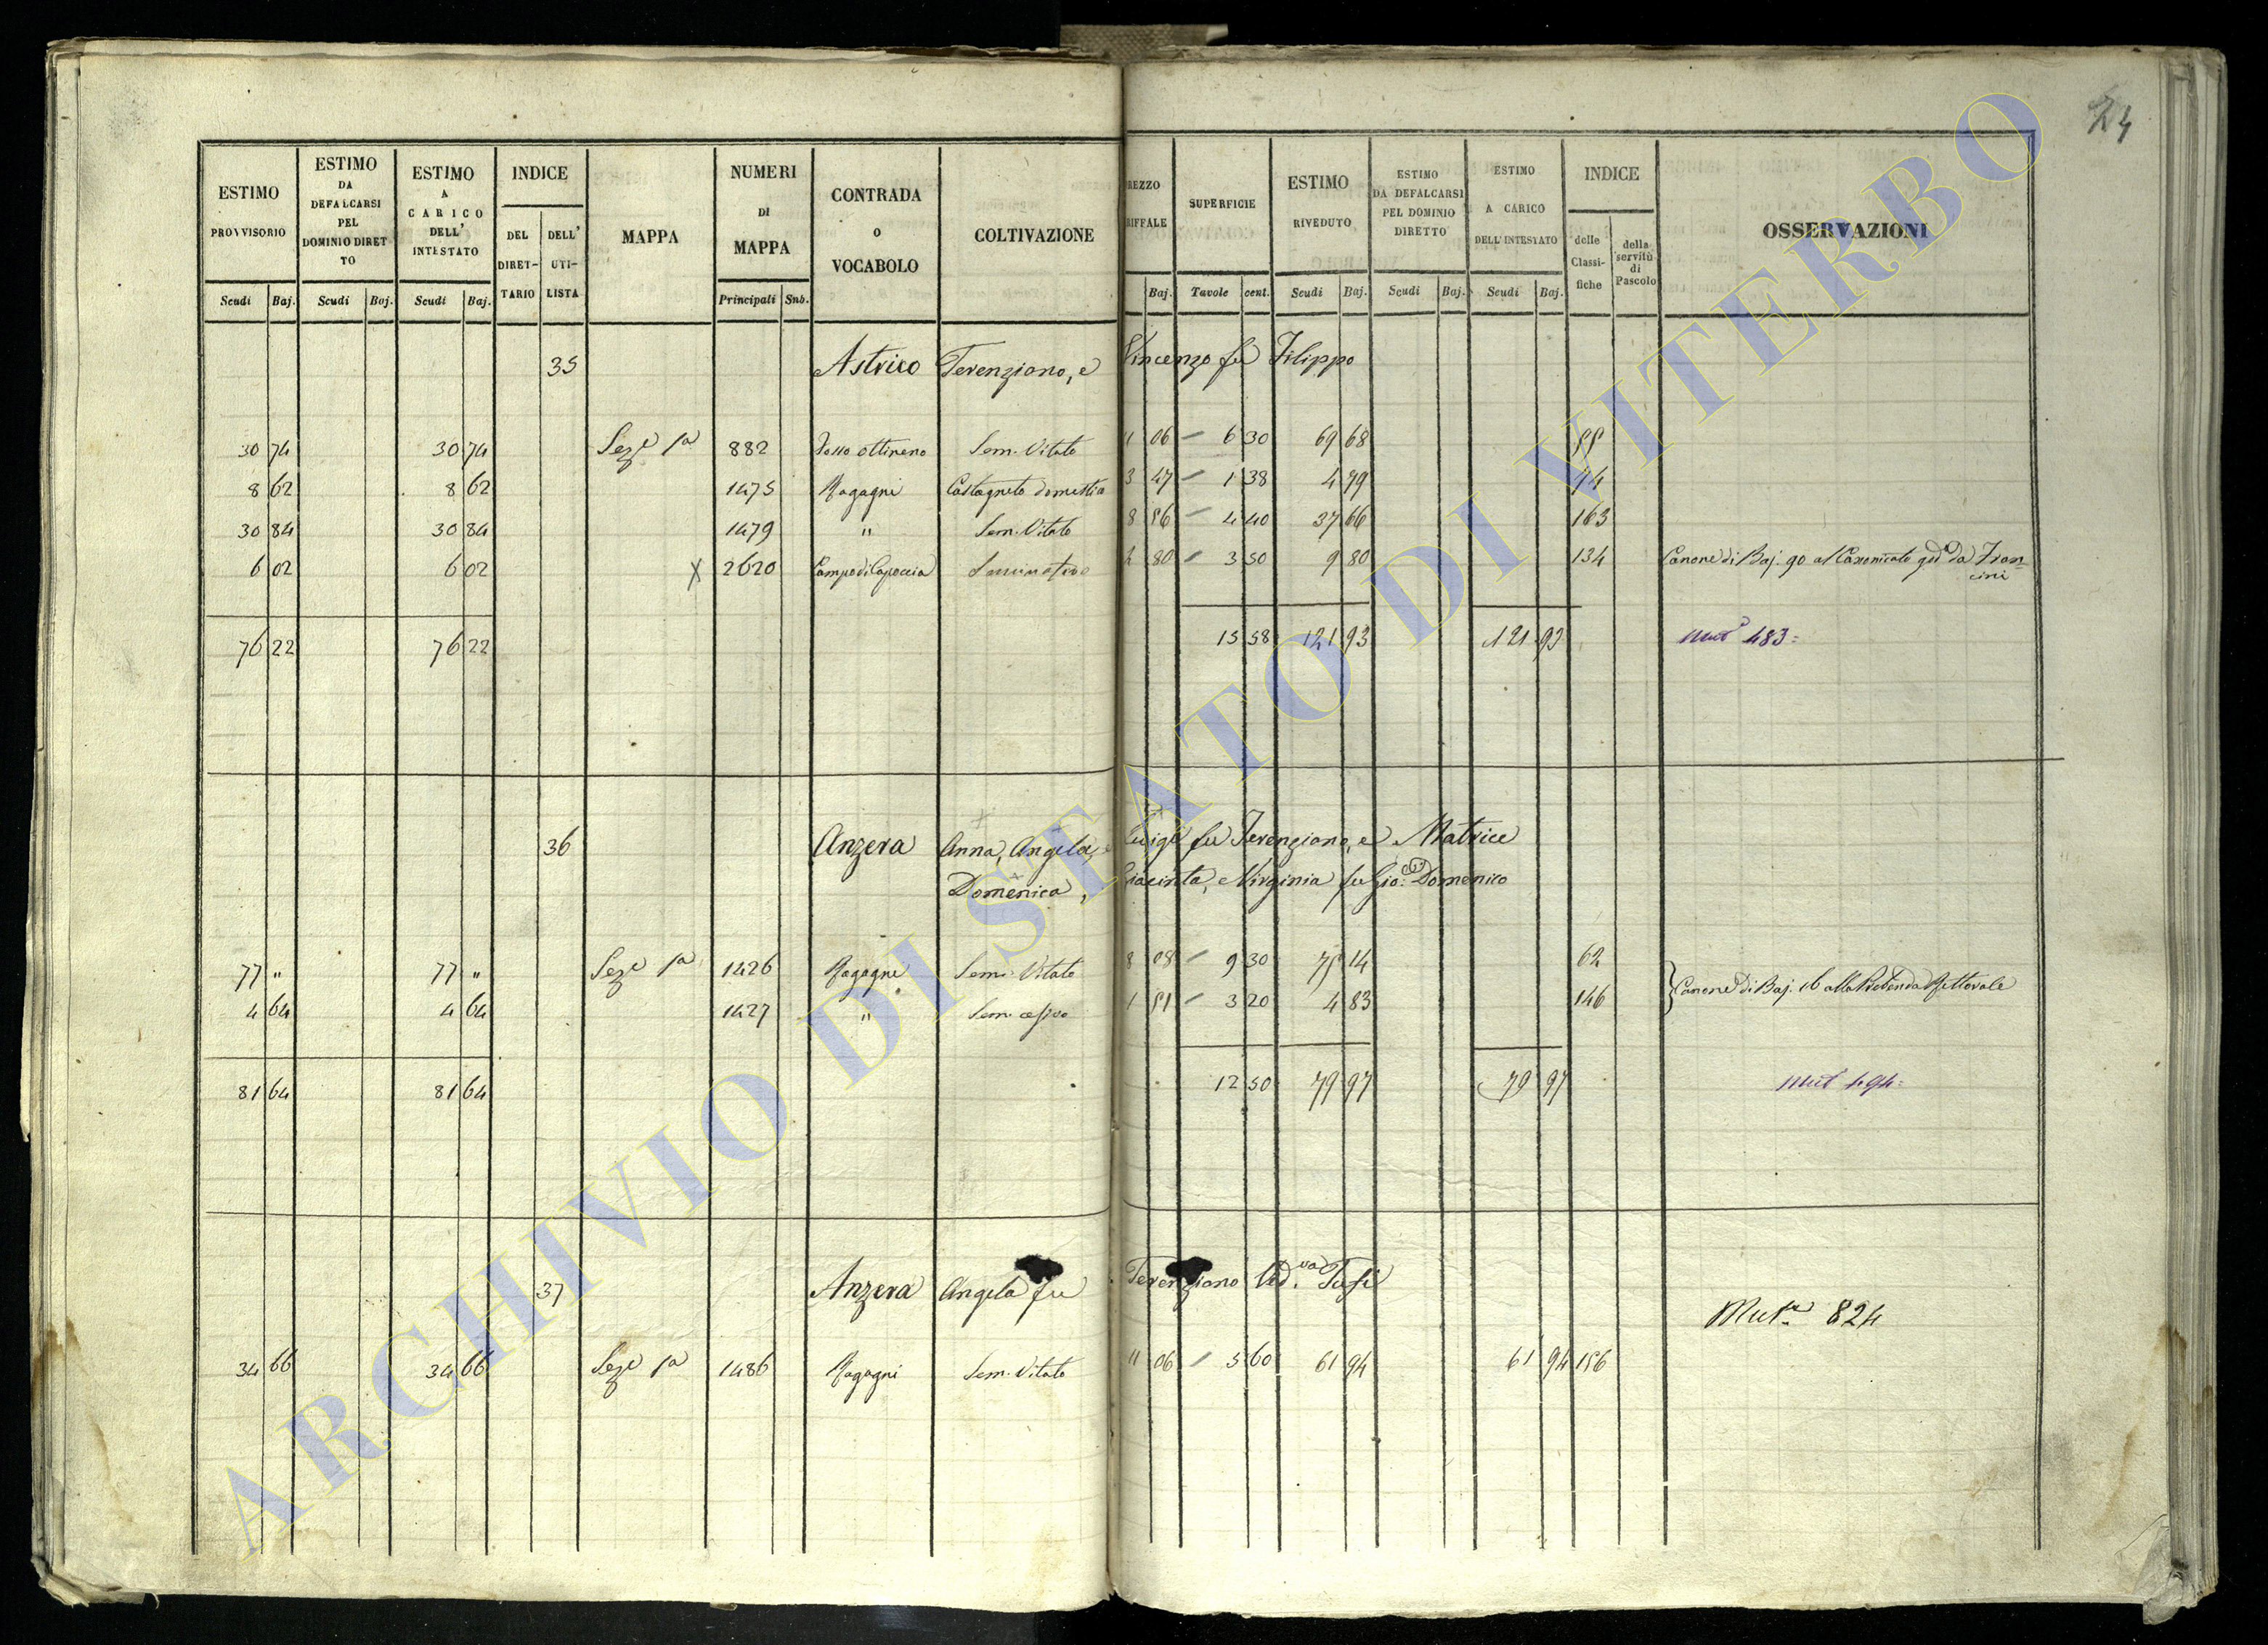 24
ESTIMO PROVVISORIO | ESTIMO DA DEFALCARSI PEL DOMINIO DIRETTO | ESTIMO A CARICO DELL' INTESTATO | INDICE | MAPPA | NUMERI DI MAPPA | CONTRADA O VOCABOLO | COLTIVAZIONE | REZZO RIFFALE | SUPERFICIE | ESTIMO RIVEDUTO | ESTIMO DA DEFALCARSI PEL DOMINIO DIRETTO | ESTIMO A CARICO DELL' INTESTATO | INDICE | OSSERVAZIONI
DEL DIRETTARIO | DELL' UTILISTA | delle Classifiche | della servitù di Pascolo
Scudi | Baj. | Scudi | Baj. | Scudi | Baj. | Principali | Sub. | Baj. | Tavole | cent. | Scudi | Baj. | Scudi | Baj. | Scudi | Baj.
35 Astrico Terenziano, e Vincenzo fu Filippo
30 74 30 74 Seze 1a 882 Sem. Vitato 11 06 – 6 30 69 68
8 62 8 62 1475 Ragagni Castagneto domestico 3 47 – 1 38 4 79
30 84 30 84 1479 " Sem. Vitato 8 56 – 4 40 37 66 163
6 02 6 02 X 2620 Campo di Capoccia Seminativo 2 80 – 3 50 9 80 134 Canone di Baj. 90 al Canonicato da Francini
76 22 76 22 15 58 121 93 121 93 Mut 483=
36 Anzera Anna, Angela, e Luigi fu Terenziano, e Matrice
Domenica, Giacinta, Virginia fu Gio: Domenico
77 " 77 " Seze 1a 1426 Ragagni Sem. Vitato 8 08 – 9 30 75 14 62
4 64 4 64 1427 " Sem. 1 51 – 3 20 4 83 146 Canone di Baj. 16 alla Prebenda Rettorale
81 64 81 64 12 50 79 97 79 97 Mut 494=
37 Anzera Angela fu Terenziano Ved.va Tufi
Muta 824
34 66 34 66 Seze 1a 1486 Ragagni Sem. Vitato 11 06 – 5 60 61 94 61 94 156
ARCHIVIO DI STATO DI VITERBO